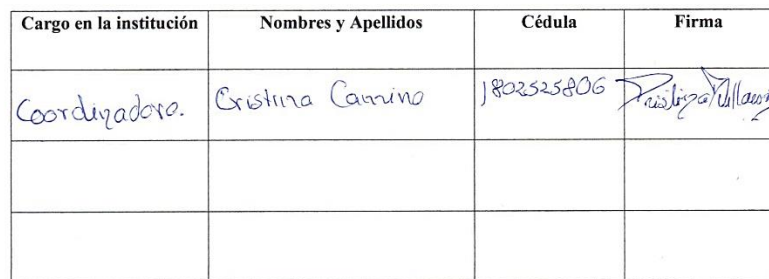 Cargo en la institución Nombres y Apellidos Cédula Firma
Coordinadora. Cristina Camino 1802525806